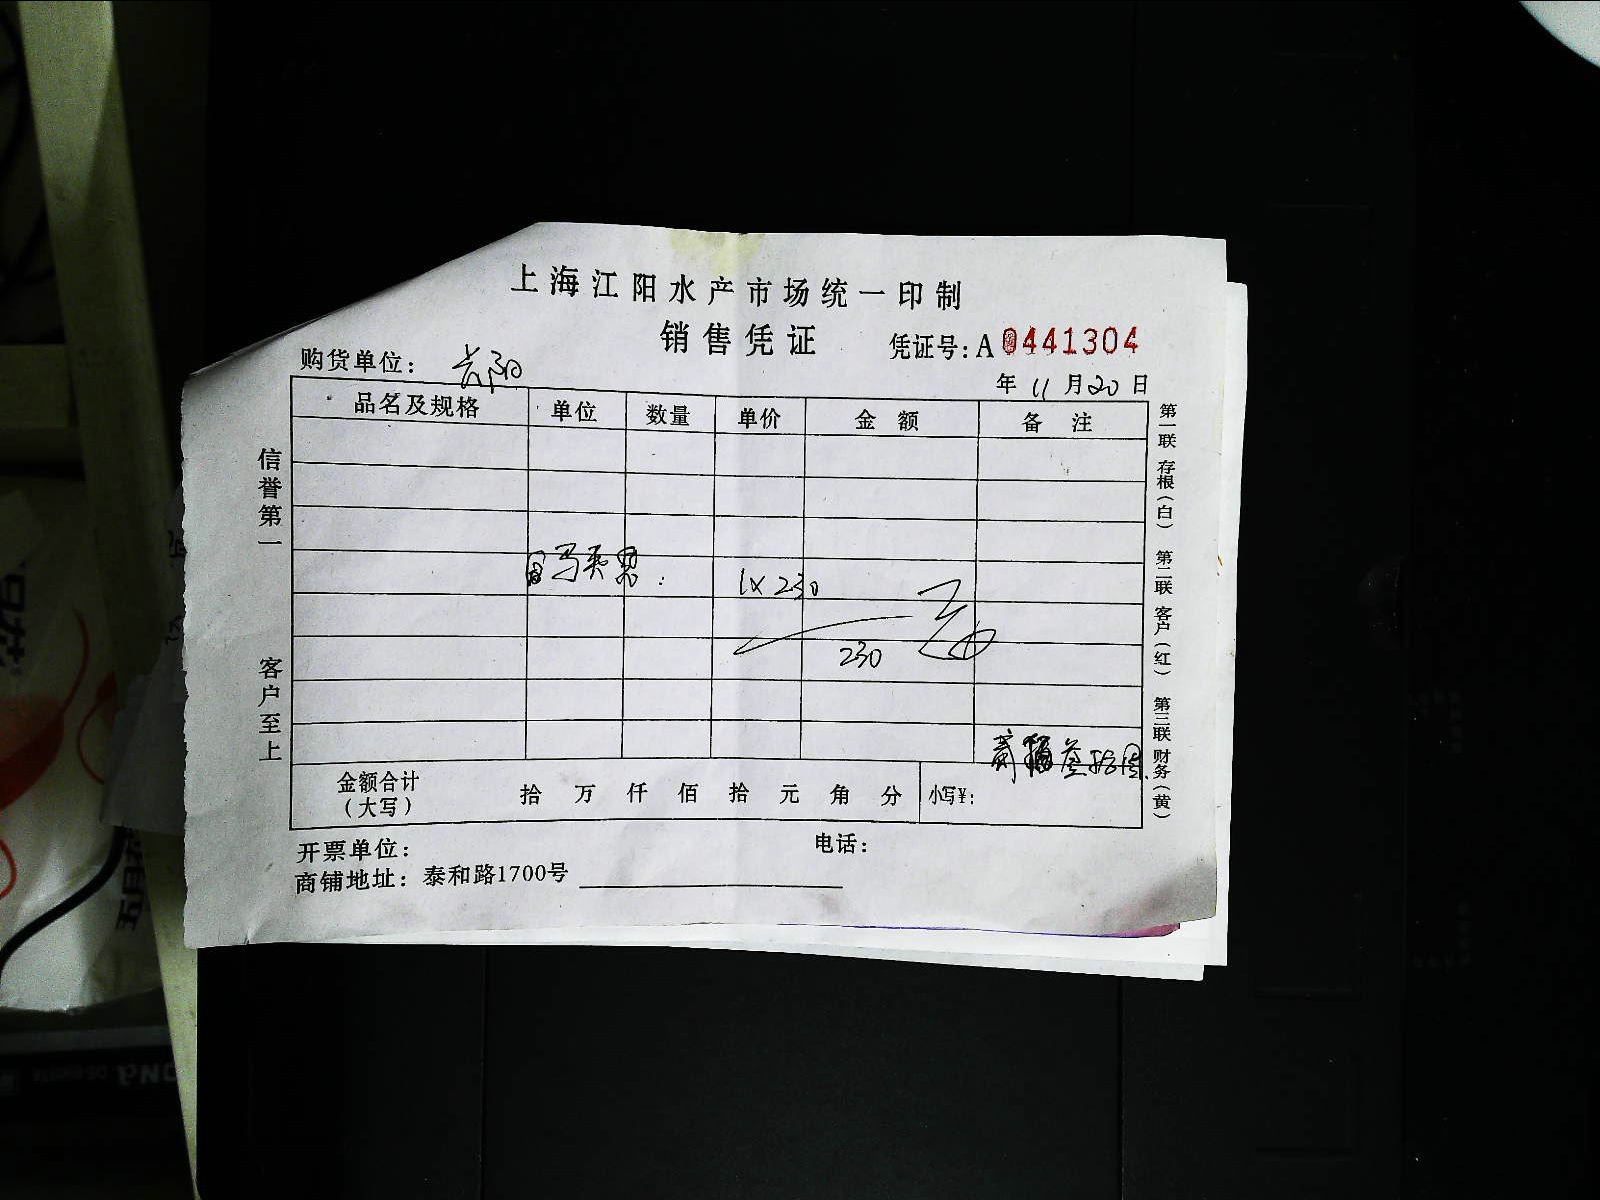 上海江阳水产市场统一印制
销售凭证
凭证号：A 0441304
购货单位：
年 11 月 20 日
品名及规格 单位 数量 单价 金额 备注
1X 230
230
贰 叁拾
金额合计（大写） 拾 万 仟 佰 拾 元 角 分 小写¥：
开票单位： 电话：
商铺地址：泰和路1700号
信誉第一 客户至上
第一联 存根（白） 第二联 客户（红） 第三联 财务（黄）